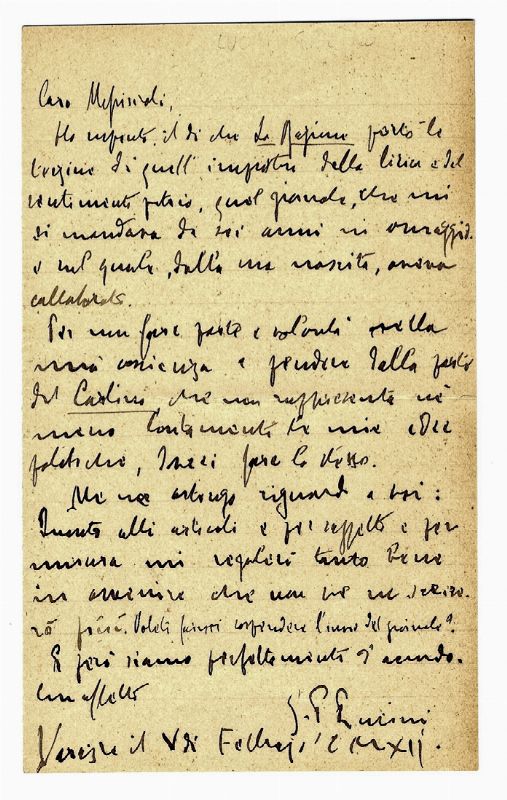 Caro Meriscali,
Ho respinto il dì che La Ragione portò le
di quell' della lirica e del
sentimento patrio, quel giornale, che mi
si mandava da sei anni in omaggio
e nel quale, dalla sua nascita, avevo
collaborato.
Per non fare parte e volontà nella
mia coscienza e pendere dalla parte
del Carlino che non rappresenta nè
meno lontanamente le mie idee
politiche, fare lo stesso.
Me ne astengo riguardo a voi:
Quanto alli articoli e per rispetto e per
misura mi regolerò tanto bene
in avvenire che non ve ne
rò più. Volete farmi sospendere l'invio del giornale?
E però siamo perfettamente d'accordo.
Con affetto
G. P. Lucini
Varazze il V di Febbrajo MCMXII.